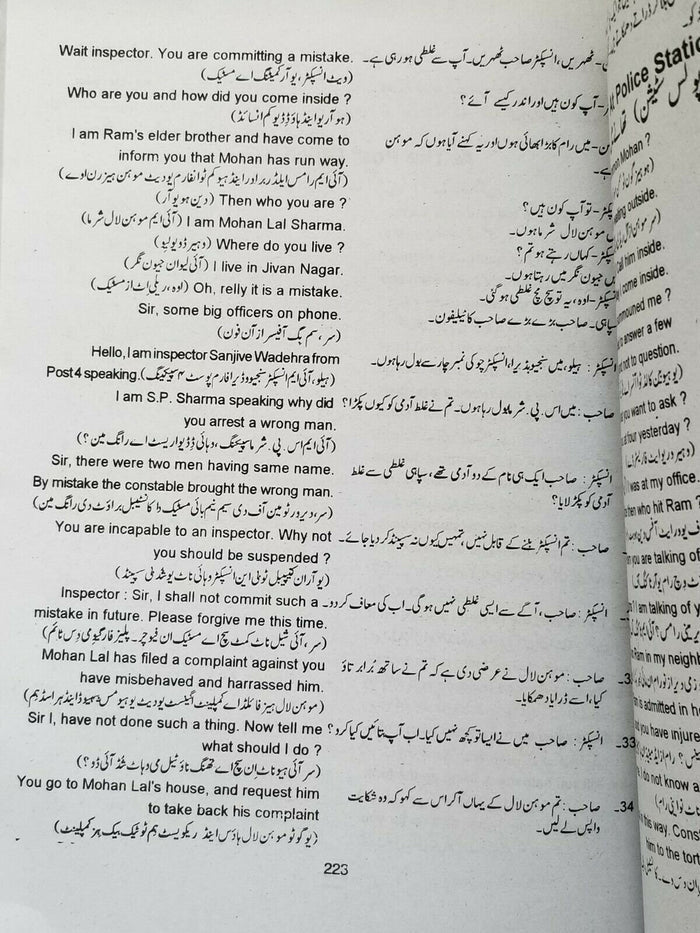 Wait inspector. You are committing a mistake. ٹھہریں، انسپکٹر صاحب ٹھہریں۔ آپ سے غلطی ہو رہی ہے۔
(ویٹ انسپکٹر، یو آر کمیٹنگ اے مسٹیک)
Who are you and how did you come inside ? آپ کون ہیں اور اندر کیسے آئے؟
(ہو آر یو اینڈ ہاؤ ڈڈ یو کم انسائڈ)
I am Ram's elder brother and have come to میں رام کا بڑا بھائی ہوں اور یہ کہنے آیا ہوں کہ موہن
inform you that Mohan has run way. ہے۔
(آئی ایم رامس ایلڈر برادر اینڈ ہیو کم ٹو انفارم یو دیٹ موہن ہیز رن اوے)
(دین ہو یو آر) Then who you are ? تو آپ کون ہیں؟
(آئی ایم موہن لال شرما) I am Mohan Lal Sharma. موہن لال شرما ہوں۔
(وہیر ڈو یو لِو) Where do you live ? کہاں رہتے ہو تم؟
(آئی لیو ان جیون نگر) I live in Jivan Nagar. جیون نگر میں رہتا ہوں۔
(اوہ، ریلی اٹ از مسٹیک) Oh, relly it is a mistake. اوہ، یہ تو سچ مچ غلطی ہو گئی۔
Sir, some big officers on phone. صاحب بڑے بڑے صاحب کا ٹیلیفون۔
(سر، سم بگ آفیسرز آن فون)
Hello, I am inspector Sanjive Wadehra from انسپکٹر : ہیلو، میں سنجیو وڈیرا، انسپکٹر چوکی نمبر چار سے بول رہا ہوں۔
Post 4 speaking. (ہیلو، آئی ایم انسپکٹر سنجیو وڈیرا فارم پوسٹ ۴ سپیکینگ)
I am S.P. Sharma speaking why did صاحب : میں اس۔ پی۔ شرما بول رہا ہوں۔ تم نے غلط آدمی کو کیوں پکڑا؟
you arrest a wrong man.
(آئی ایم اس۔ پی۔ شرما سپیکنگ، وہائی ڈڈ یو اریسٹ اے رانگ مین؟)
Sir, there were two men having same name. انسپکٹر : صاحب ایک ہی نام کے دو آدمی تھے، سپاہی غلطی سے غلط
By mistake the constable brought the wrong man. آدمی کو پکڑ لایا؟
(سر، دیر ور ٹو مین آف دی سیم نیم بائی مسٹیک دا کانسٹیبل براؤٹ دی رانگ مین)
You are incapable to an inspector. Why not صاحب : تم انسپکٹر بننے کے قابل نہیں، تمہیں کیوں نہ سسپینڈ کر دیا جائے۔
you should be suspended ?
(یو آر ان کیپیبل ٹو بی این انسپکٹر وہائی ناٹ یو شڈ بی سسپینڈ)
Inspector : Sir, I shall not commit such a انسپکٹر : صاحب، آگے سے ایسی غلطی نہیں ہوگی۔ اب کی معاف کر دو۔
mistake in future. Please forgive me this time.
(سر، آئی شیل ناٹ کمٹ سچ اے مسٹیک ان فیوچر۔ پلیز فارگیو می دس ٹائم)
Mohan Lal has filed a complaint against you صاحب : موہن لال نے عرضی دی ہے کہ تم نے ساتھ برا برتاؤ
have misbehaved and harrassed him. کیا، اسے ڈرایا دھمکایا۔
(موہن لال ہیز فائلڈ اے کمپلینٹ اگینسٹ یو دیٹ یو ہیو مس بہیوڈ اینڈ ہراسڈ ہم)
Sir I, have not done such a thing. Now tell me انسپکٹر : صاحب میں نے ایسا تو کچھ نہیں کیا۔ اب آپ بتائیں کیا کرو؟ ۔33
what should I do ?
(سر آئی ہیو ناٹ ڈن سچ اے تھنگ ناؤ ٹیل می وہاٹ شڈ آئی ڈو؟)
You go to Mohan Lal's house, and request him صاحب : تم موہن لال کے یہاں آکر اس سے کہو کہ وہ شکایت ۔34
to take back his complaint واپس لے لیں۔
(یو گو ٹو موہن لال ہاؤس اینڈ ریکویسٹ ہم ٹو ٹیک بیک ہز کمپلینٹ)
223
Police Statio
پولس سٹیشن
Mohan ?
outside.
him inside.
come inside.
me ?
to answer a few
not to question.
you want to ask ?
four yesterday ?
was at my office.
then who hit Ram ?
you are talking of
I am talking of y
Ram in my neigh
is admitted in h
you have injure
I do not know a
this way. Cons
him to the tort